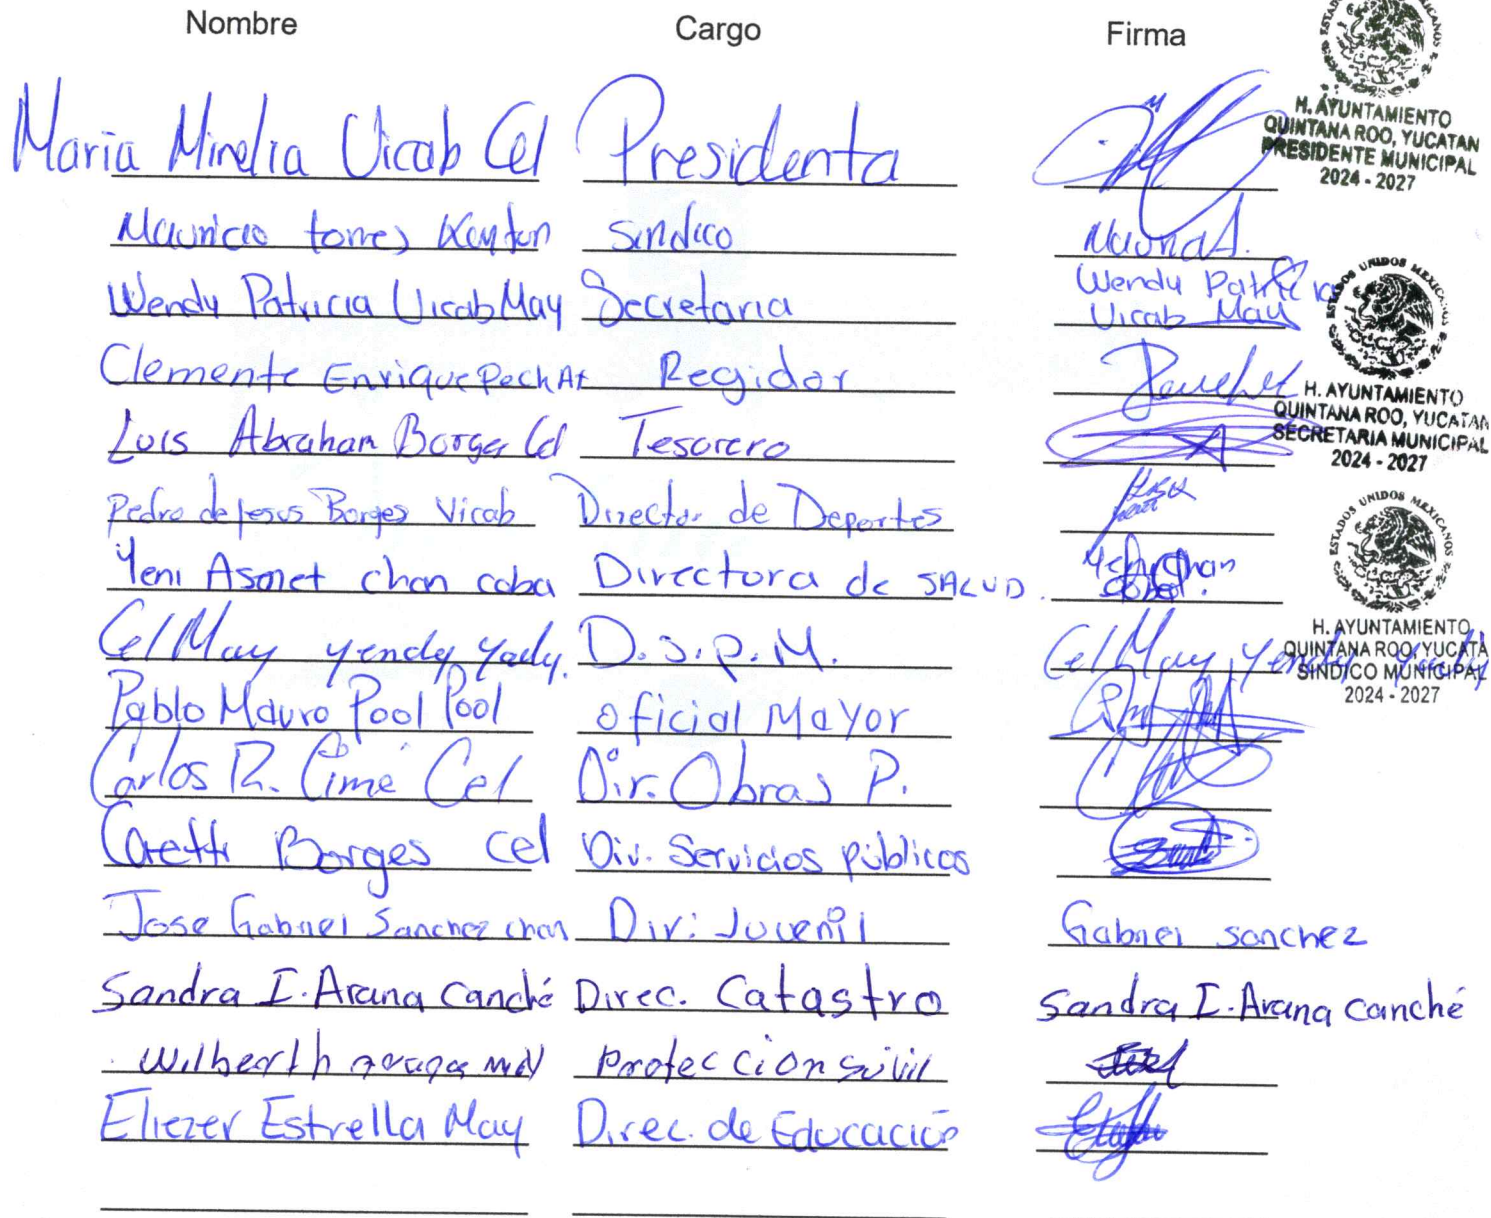 Nombre Cargo Firma
Maria Minelia Uicab Cel Presidenta
Mauricio torres sindico
Wendy Patricia Uicab May Secretaria Wendy Patricia
Uicab May
Clemente Enrique Pech At Regidor
Luis Abraham Borges Cel Tesorero
Pedro de Jesus Borges Vicab Director de Deportes
Yeni Asonet chan coba Directora de SALUD. Yeni Chan
Coba.
Cel May yendy yady. D.S.P.M. Cel May yendy yady
Pablo Mauro Pool Pool oficial Mayor
Carlos R. Cimé Cel Dir. Obras P.
Borges cel Dir. Servicios públicos
Jose Gabriel Sanchez chan Dir: Juvenil Gabriel sanchez
Sandra I. Arana Canché Direc. Catastro Sandra I. Arana Canché
Wilberth Proteccion sivil
Eliezer Estrella May Direc. de Educación
H. AYUNTAMIENTO
QUINTANA ROO, YUCATAN
PRESIDENTE MUNICIPAL
2024 - 2027
ESTADOS UNIDOS MEXICANOS
H. AYUNTAMIENTO
QUINTANA ROO, YUCATAN
SECRETARIA MUNICIPAL
2024 - 2027
ESTADOS UNIDOS MEXICANOS
H. AYUNTAMIENTO
QUINTANA ROO, YUCATA
SINDICO MUNICIPAL
2024 - 2027